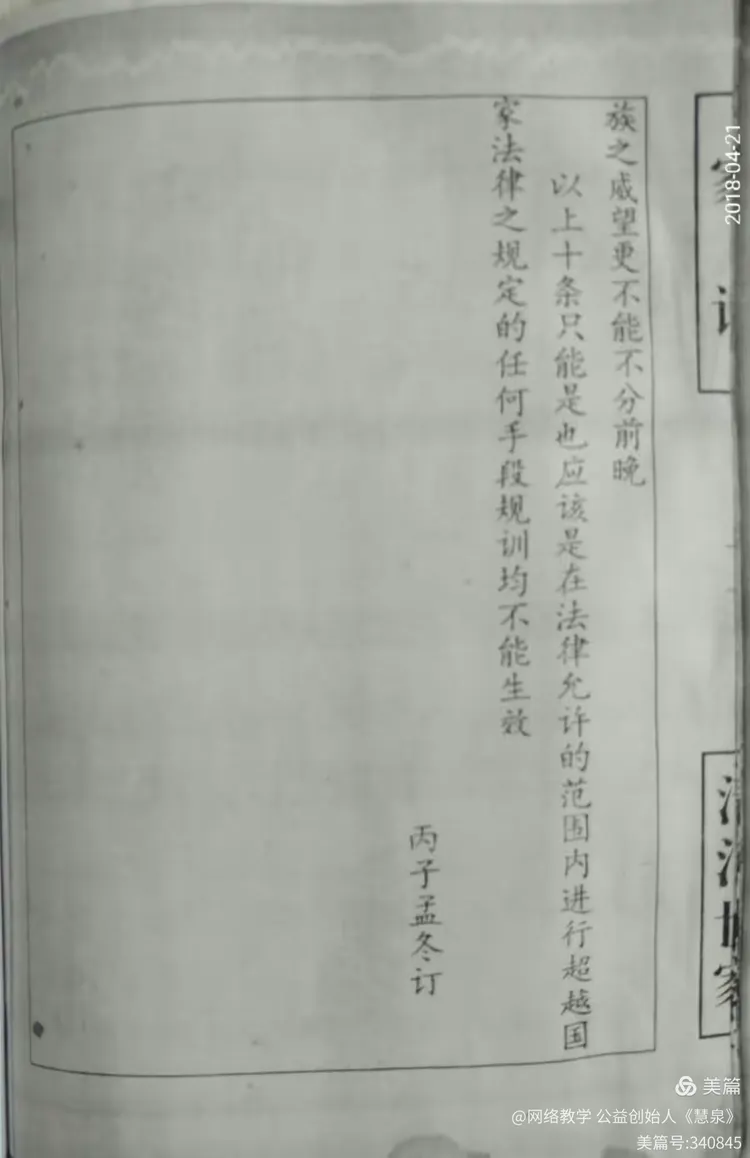 族之威望更不能不分前晚
以上十条只能是也应该是在法律允许的范围内进行超越国
家法律之规定的任何手段规训均不能生效
丙子孟冬订
2018-04-21
美篇
@网络教学 公益创始人《慧泉》
美篇号:340845